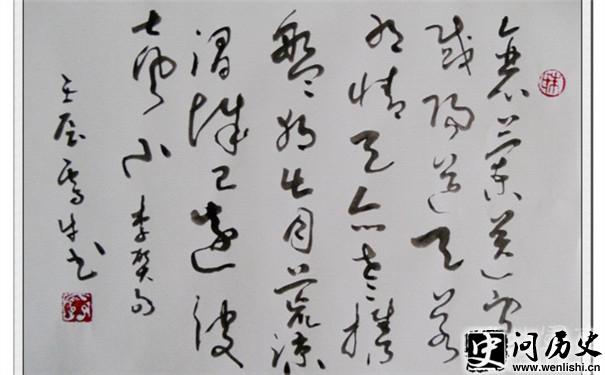 衰兰送客
咸阳道天若
有情天亦老携
盘独出月荒凉
渭城已远波
声小 李贺句
壬辰 书
问历史
www.wenlishi.cn